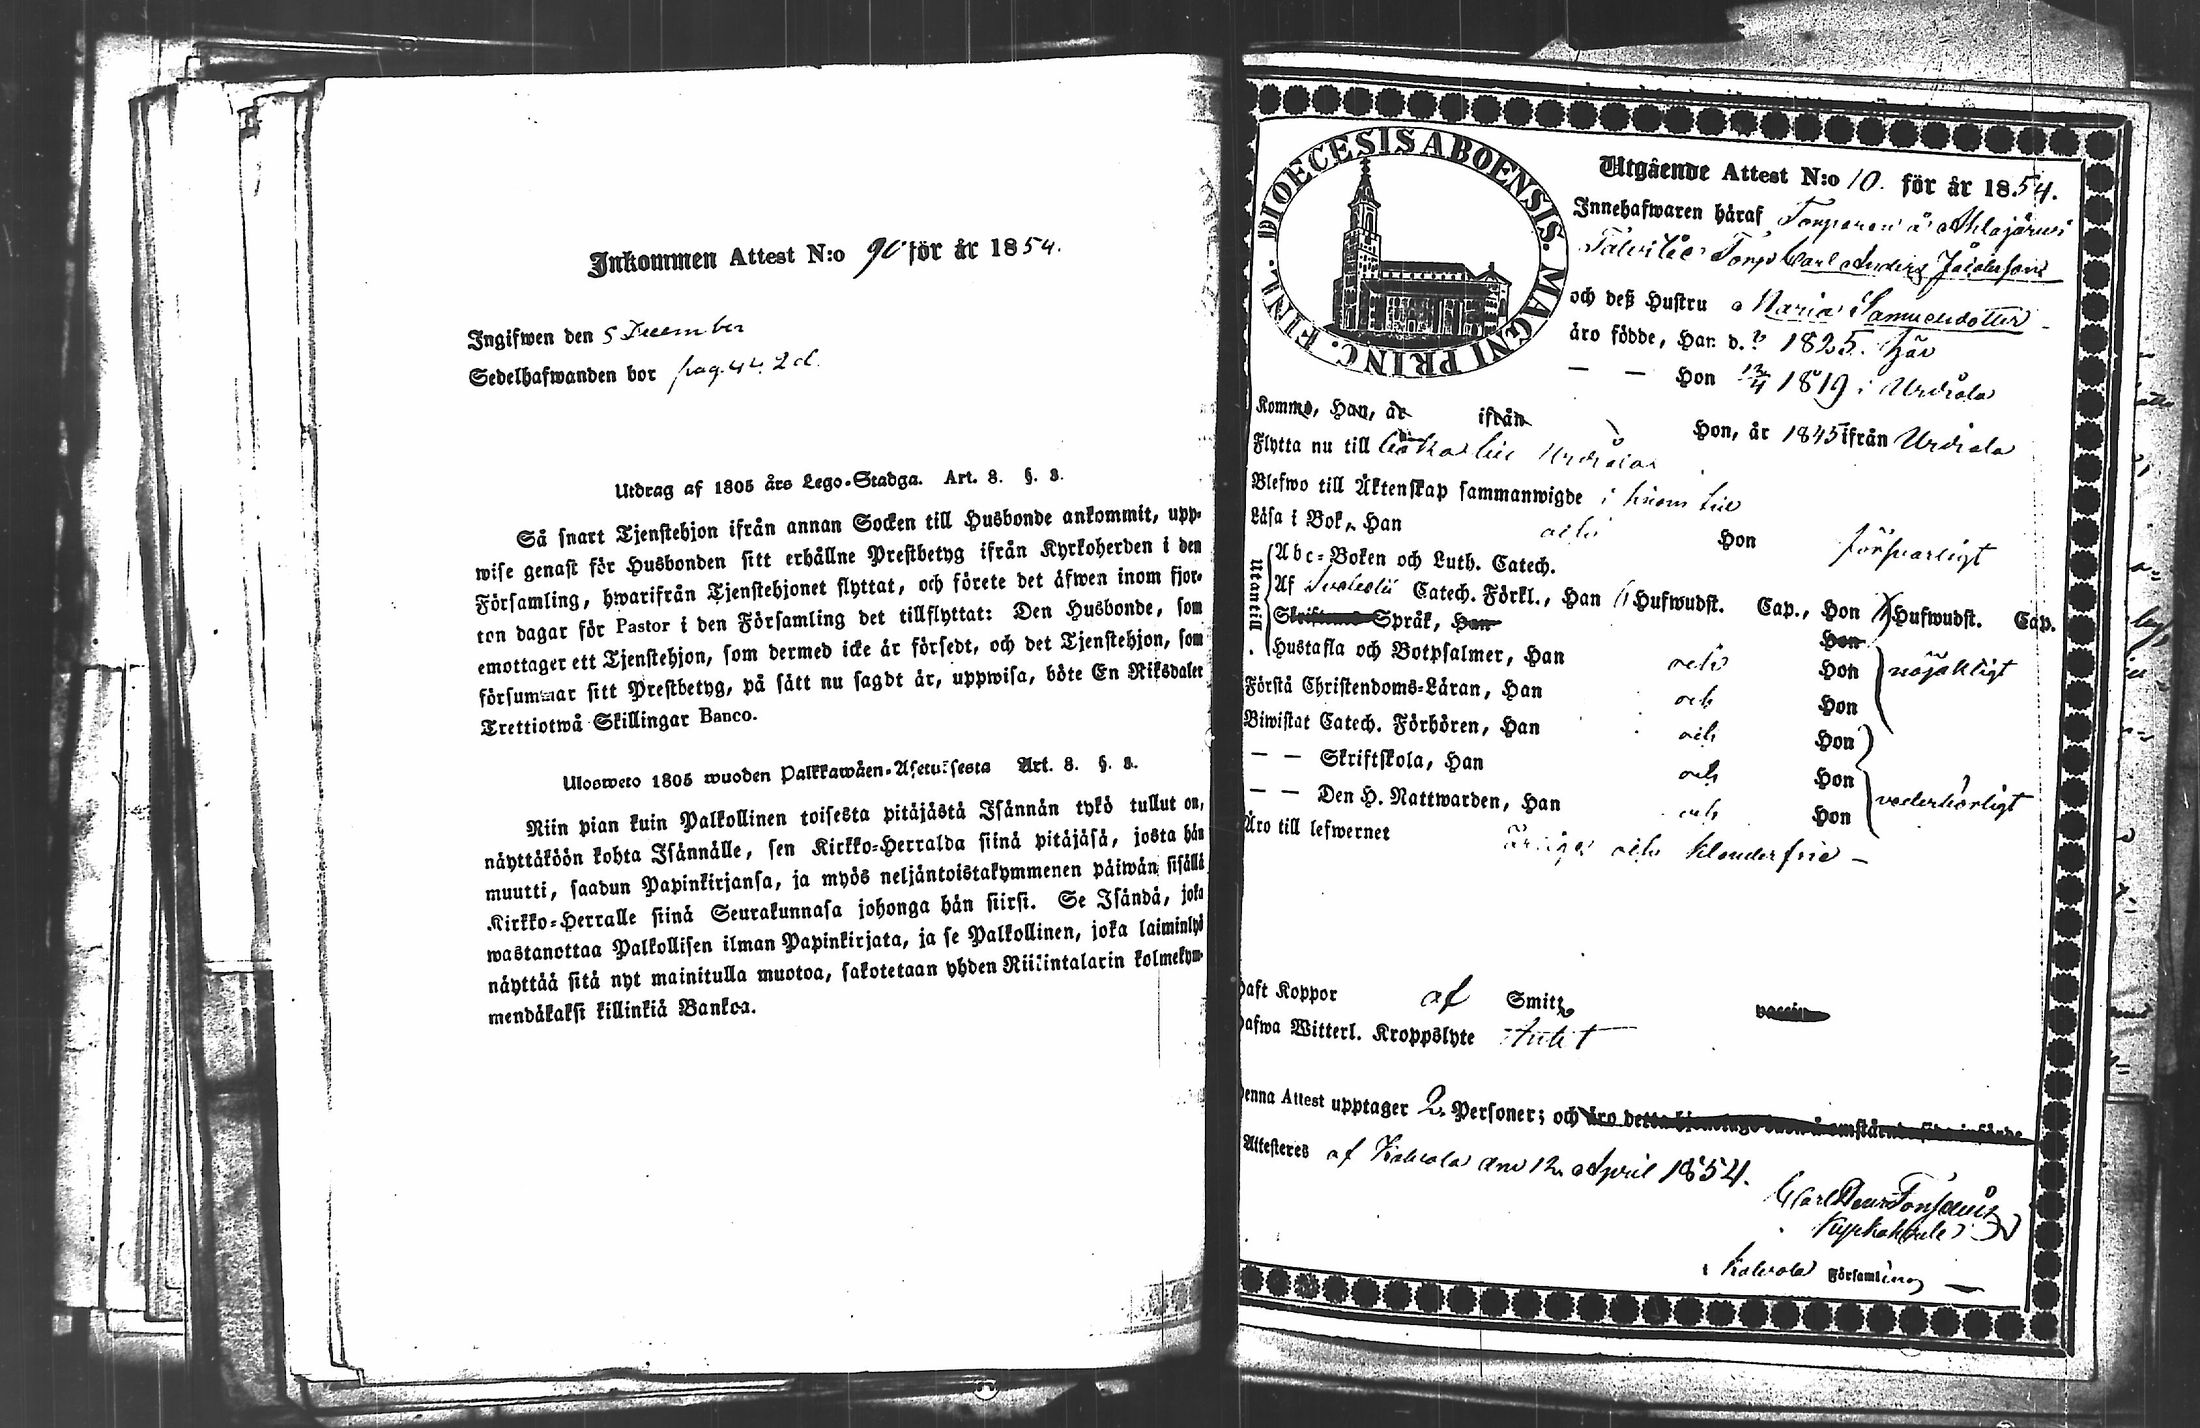 Inkommen Attest N:o 90 för år 1854.
Ingifwen den 5 December
Sedelhafwanden bor pag. 442 d.
Utdrag af 1805 års Lego-Stadga. Art. 8. §. 8.
Så snart Tjenstehjon ifrån annan Socken till Husbonde ankommit, upp-
wise genast för Husbonden sitt erhållne Prestbetyg ifrån Kyrkoherden i den
Församling, hwarifrån Tjenstehjonet flyttat, och förete det äfwen inom fjor-
ton dagar för Pastor i den Församling det tillflyttat: Den Husbonde, som
emottager ett Tjenstehjon, som dermed icke är försedt, och det Tjenstehjon, som
försummar sitt Prestbetyg, på sätt nu sagdt är, uppwisa, böte En Riksdaler
Trettiotwå Skillingar Banco.
Ulosweto 1805 wuoden Palkkawäen-Asetuksesta Art. 8. §. 8.
Niin pian kuin Palkollinen toisesta pitäjästä Isännän tykö tullut on,
näyttäköön kohta Isännälle, sen Kirkko-Herralda siinä pitäjäsä, josta hän
muutti, saadun Papinkirjansa, ja myös neljäntoistakymmenen päiwän sisällä
Kirkko-Herralle siinä Seurakunnasa johonga hän siirsi. Se Isändä, joka
wastanottaa Palkollisen ilman Papinkirjata, ja se Palkollinen, joka laiminlyö
näyttää sitä nyt mainitulla muotoa, sakotetaan yhden Riikintalarin kolmekym-
mendäkaksi killinkiä Bankoa.
DIOECESIS ABOENSIS. MAGNI PRINC. FINL.
Utgående Attest N:o 10. för år 1854.
Innehafwaren häraf Torparen å Ahlajärwi
Torp Carl Anders
och deß Hustru Maria Samuelsdotter
äro födde, Han d. ? 1825. här
— — Hon 12/4 1819 i Urdiala
Komme, Han, år ifrån Hon, år 1845 ifrån Urdiala
Flytta nu till Urdiala
Blefwo till Äktenskap sammanwigde
Läsa i Bok, Han och Hon försvarligt
Utantill
Abc-Boken och Luth. Catech.
Af Svebelii Catech. Förkl., Han Hufwudst. Cap., Hon Hufwudst. Cap.
Skriftens Språk, Han Hon
Hustafla och Botpsalmer, Han och Hon nöjaktigt
Förstå Christendoms-Läran, Han och Hon
Biwistat Catech. Förhören, Han och Hon
— — Skriftskola, Han och Hon
— — Den H. Nattwarden, Han och Hon vederbörligt
Äro till lefwernet ärliga och klanderfrie —
Haft Koppor af Smitt vaccin
Hafwa Witterl. Kroppslyte intet
Denna Attest upptager 2 Personer; och äro
Attesteres af Kalvola den 12 April 1854.
Carl
i Kalvola Församling